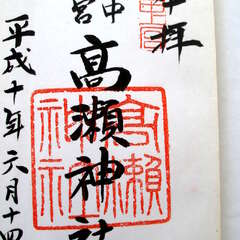 奉拝
中宮
高瀬神社
平成十年六月十四
高瀬神社